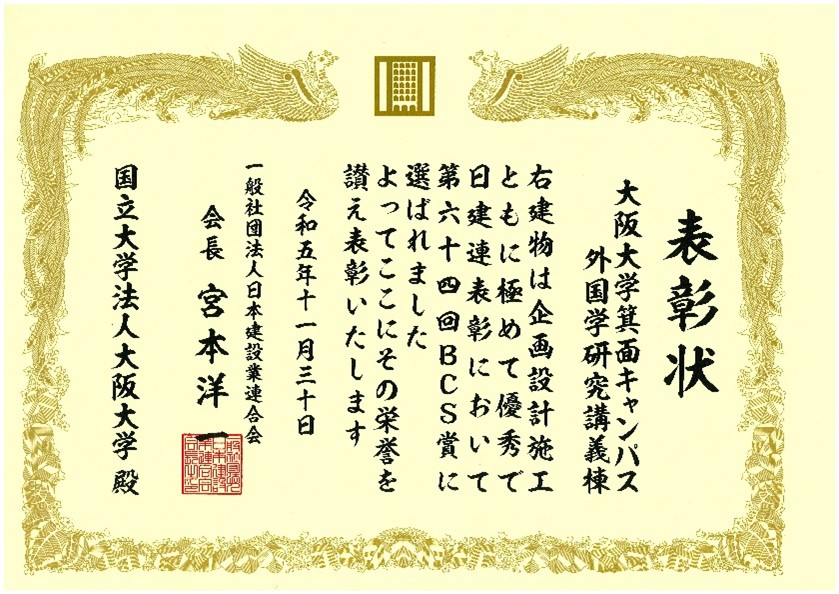 表彰状
大阪大学箕面キャンパス
外国学研究講義棟
右建物は企画設計施工
ともに極めて優秀で
日建連表彰において
第六十四回BCS賞に
選ばれました
よってここにその栄誉を
讃え表彰いたします
令和五年十一月三十日
一般社団法人日本建設業連合会
会長 宮本洋一
国立大学法人大阪大学 殿